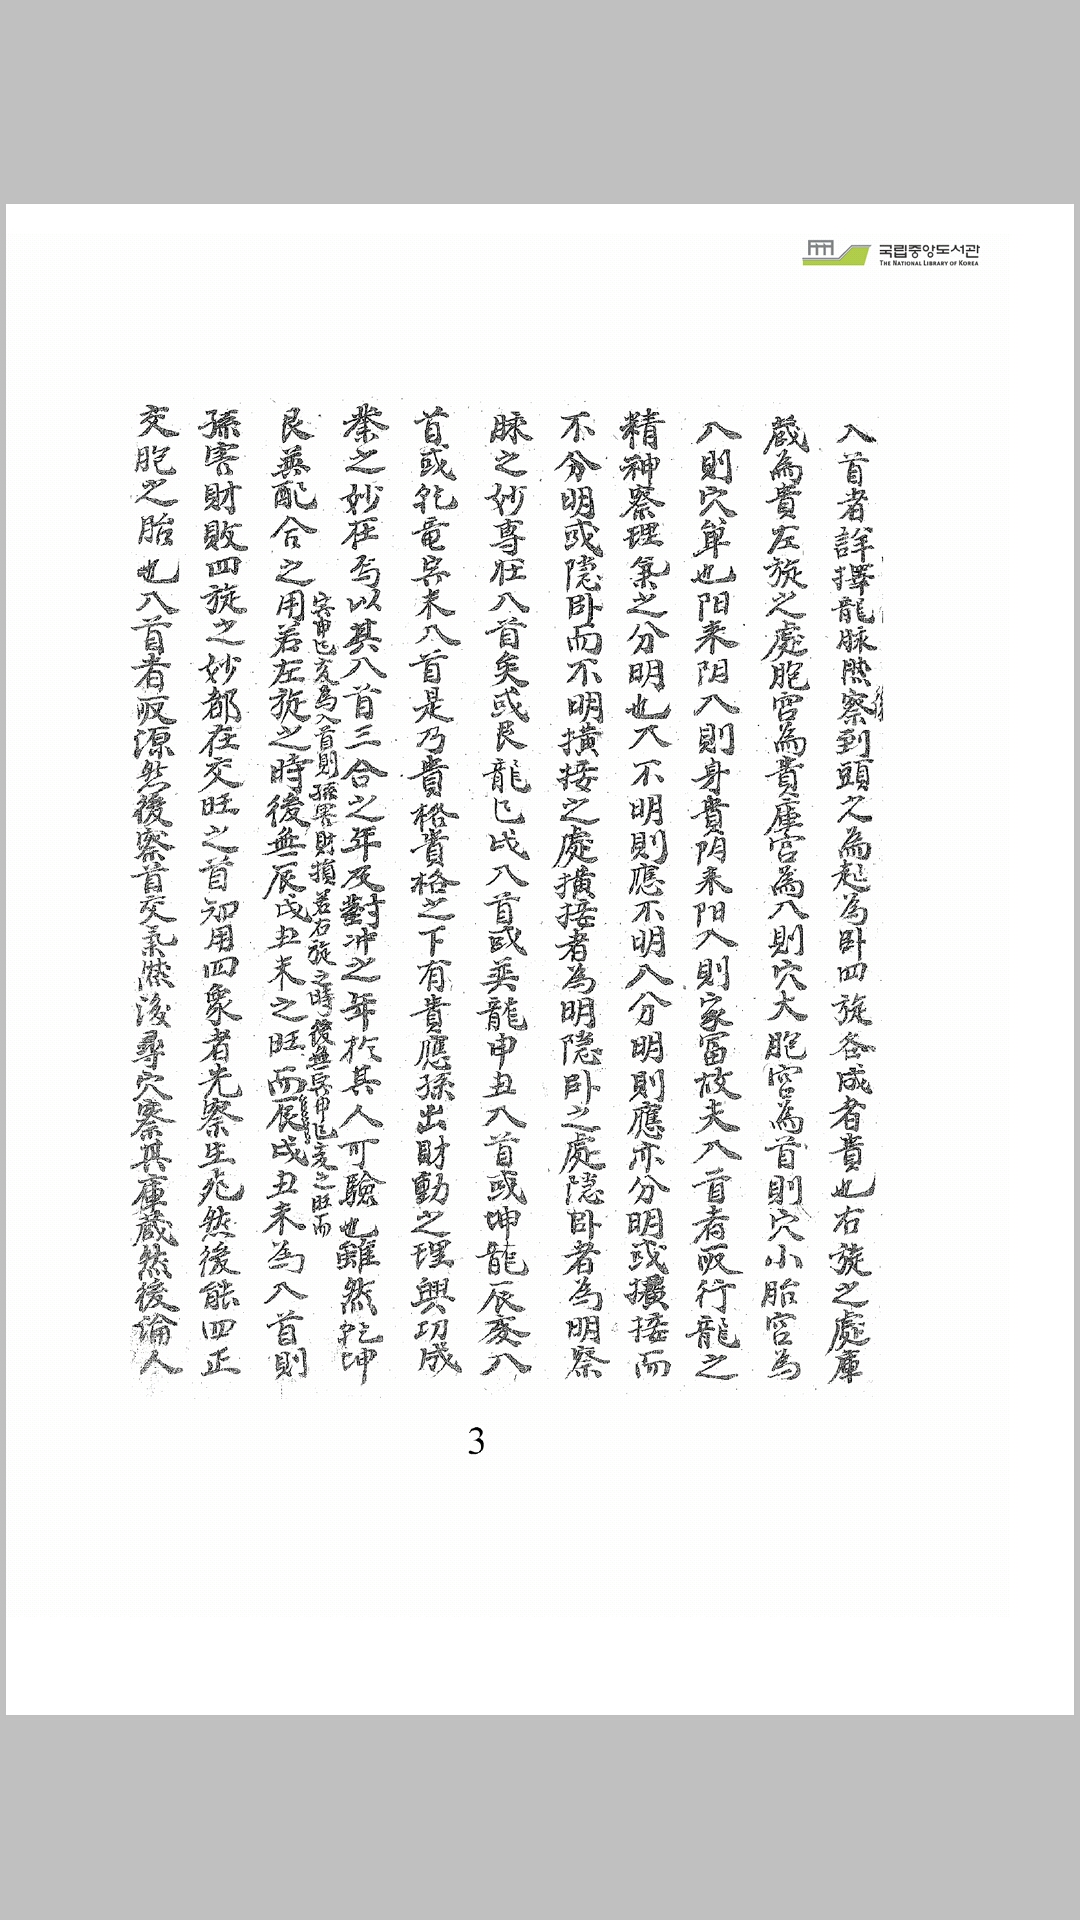 국립중앙도서관
THE NATIONAL LIBRARY OF KOREA
入首者詳擇龍脉然後察到頭之為起為卧四旋各成者貴也右旋之處庫
藏為貴左旋之處胞宮為貴庫宮為入則穴大胞宮為首則穴小胎宮為
入則穴單也阳来阴入則身貴阴来阳入則家富故夫入首者取行龍之
精神察理氣之分明也入不明則應不明入分明則應亦分明或撗接而
不分明或隱卧而不明撗接之處撗接者為明隱卧之處隱卧者為明察
脉之妙專在入首矣或艮龍巳戌入首或巽龍申丑入首或坤龍辰亥入
首或乾竜寅未入首是乃貴格貴格之下有貴應孫出財動之理興功成
業之妙在焉以其入首三合之年及對冲之年於其人可驗也雖然乾坤
艮巽配合之用若左旋之時後無辰戌丑未之旺而辰戌丑未為入首則
寅申巳亥為入首則孫害財損若右旋之時後無寅申巳亥之旺而
孫害財敗四旋之妙都在交旺之首知用四象者先察生死然後能四正
交胞之胎也入首者取源然後察首交氣然後尋穴察其庫藏然後論人
3